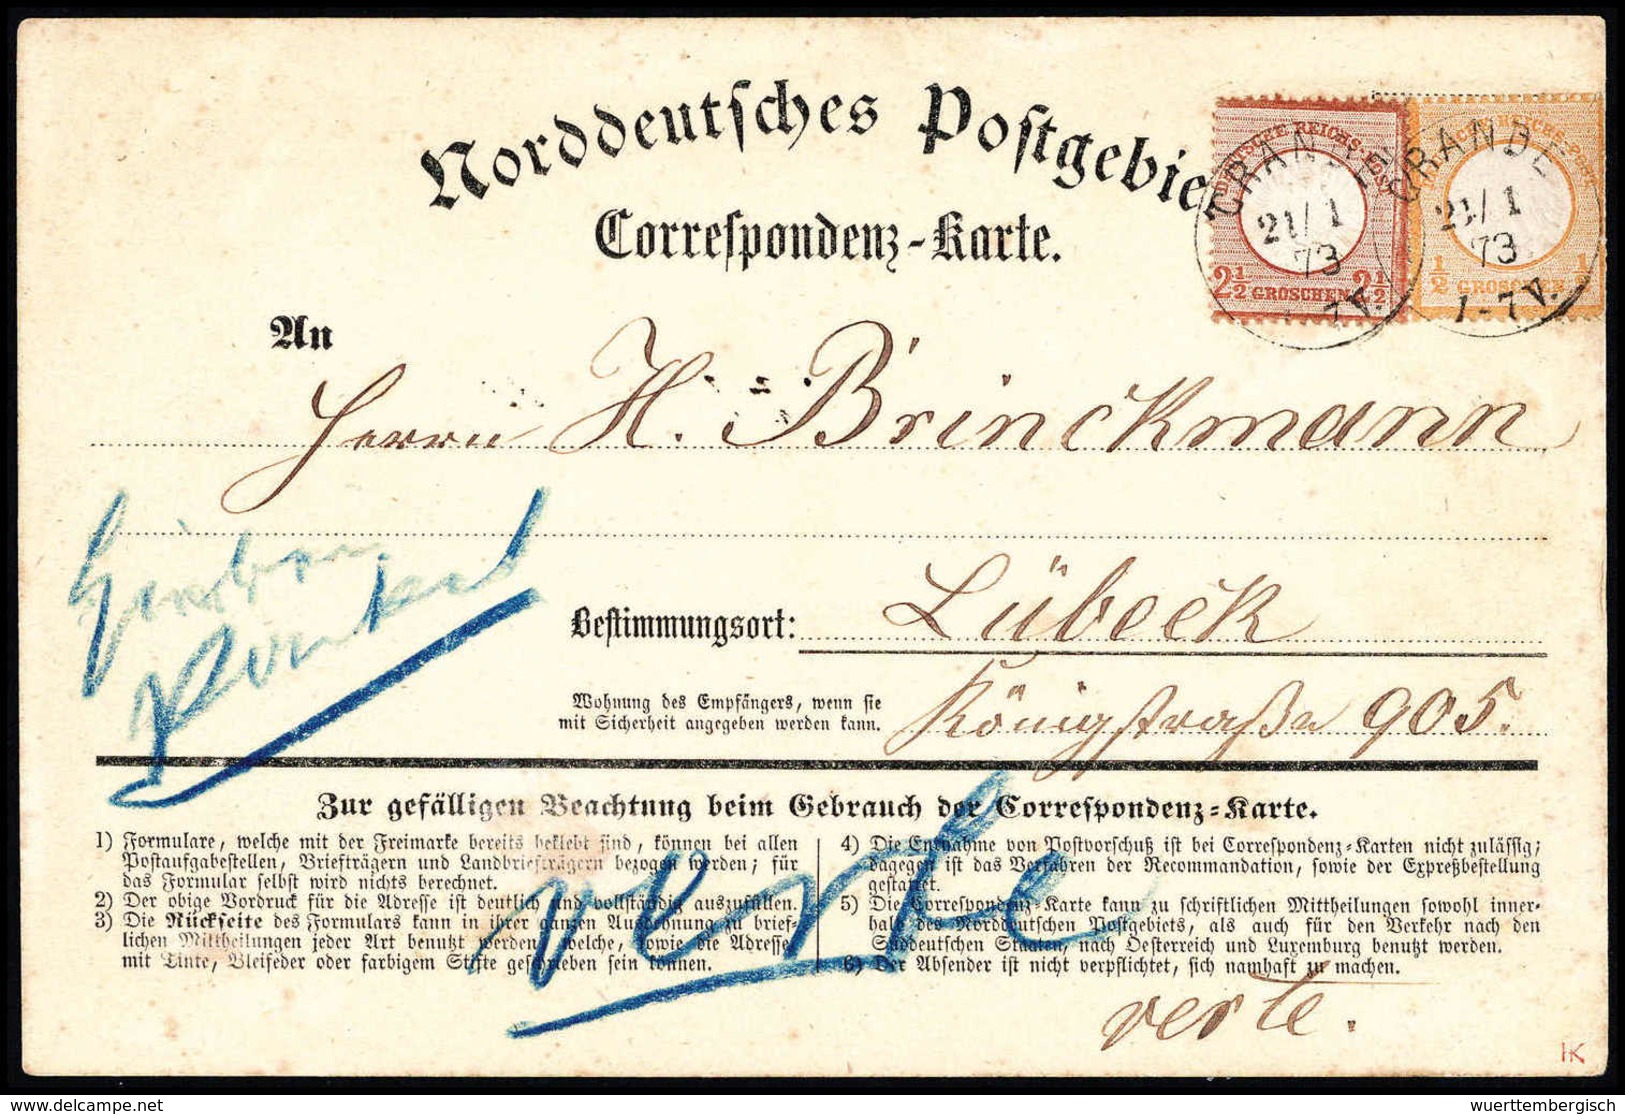 Norddeutsches Postgebie
Correspondenz-Karte.
DEUTSCHE REICHS-POST
2½ GROSCHEN 2½
½ GROSCHEN ½
GRANDE
21/1
73
7V.
GRANDE
21/1
73
1-7V.
An
Herrn H. Brinckmann
Bestimmungsort: Lübeck
Wohnung des Empfängers, wenn sie
mit Sicherheit angegeben werden kann.
Königstraße 905.
Zur gefälligen Beachtung beim Gebrauch der Correspondenz-Karte.
1) Formulare, welche mit der Freimarke bereits beklebt sind, können bei allen
Postaufgabestellen, Briefträgern und Landbriefträgern bezogen werden; für
das Formular selbst wird nichts berechnet.
2) Der obige Vordruck für die Adresse ist deutlich und vollständig auszufüllen.
3) Die Rückseite des Formulars kann in ihrer ganzen Ausdehnung zu brief-
lichen Mittheilungen jeder Art benutzt werden, welche, sowie die Adresse
mit Tinte, Bleifeder oder farbigem Stifte geschrieben sein können.
4) Die Entnahme von Postvorschuß ist bei Correspondenz-Karten nicht zulässig;
dagegen ist das Verfahren der Recommandation, sowie der Expreßbestellung
gestattet.
5) Die Correspondenz-Karte kann zu schriftlichen Mittheilungen sowohl inner-
halb des Norddeutschen Postgebiets, als auch für den Verkehr nach den
Süddeutschen Staaten, nach Oesterreich und Luxemburg benutzt werden.
6) Der Absender ist nicht verpflichtet, sich namhaft zu machen.
verte
verte.
IK
www.delcampe.net
wuerttembergisch